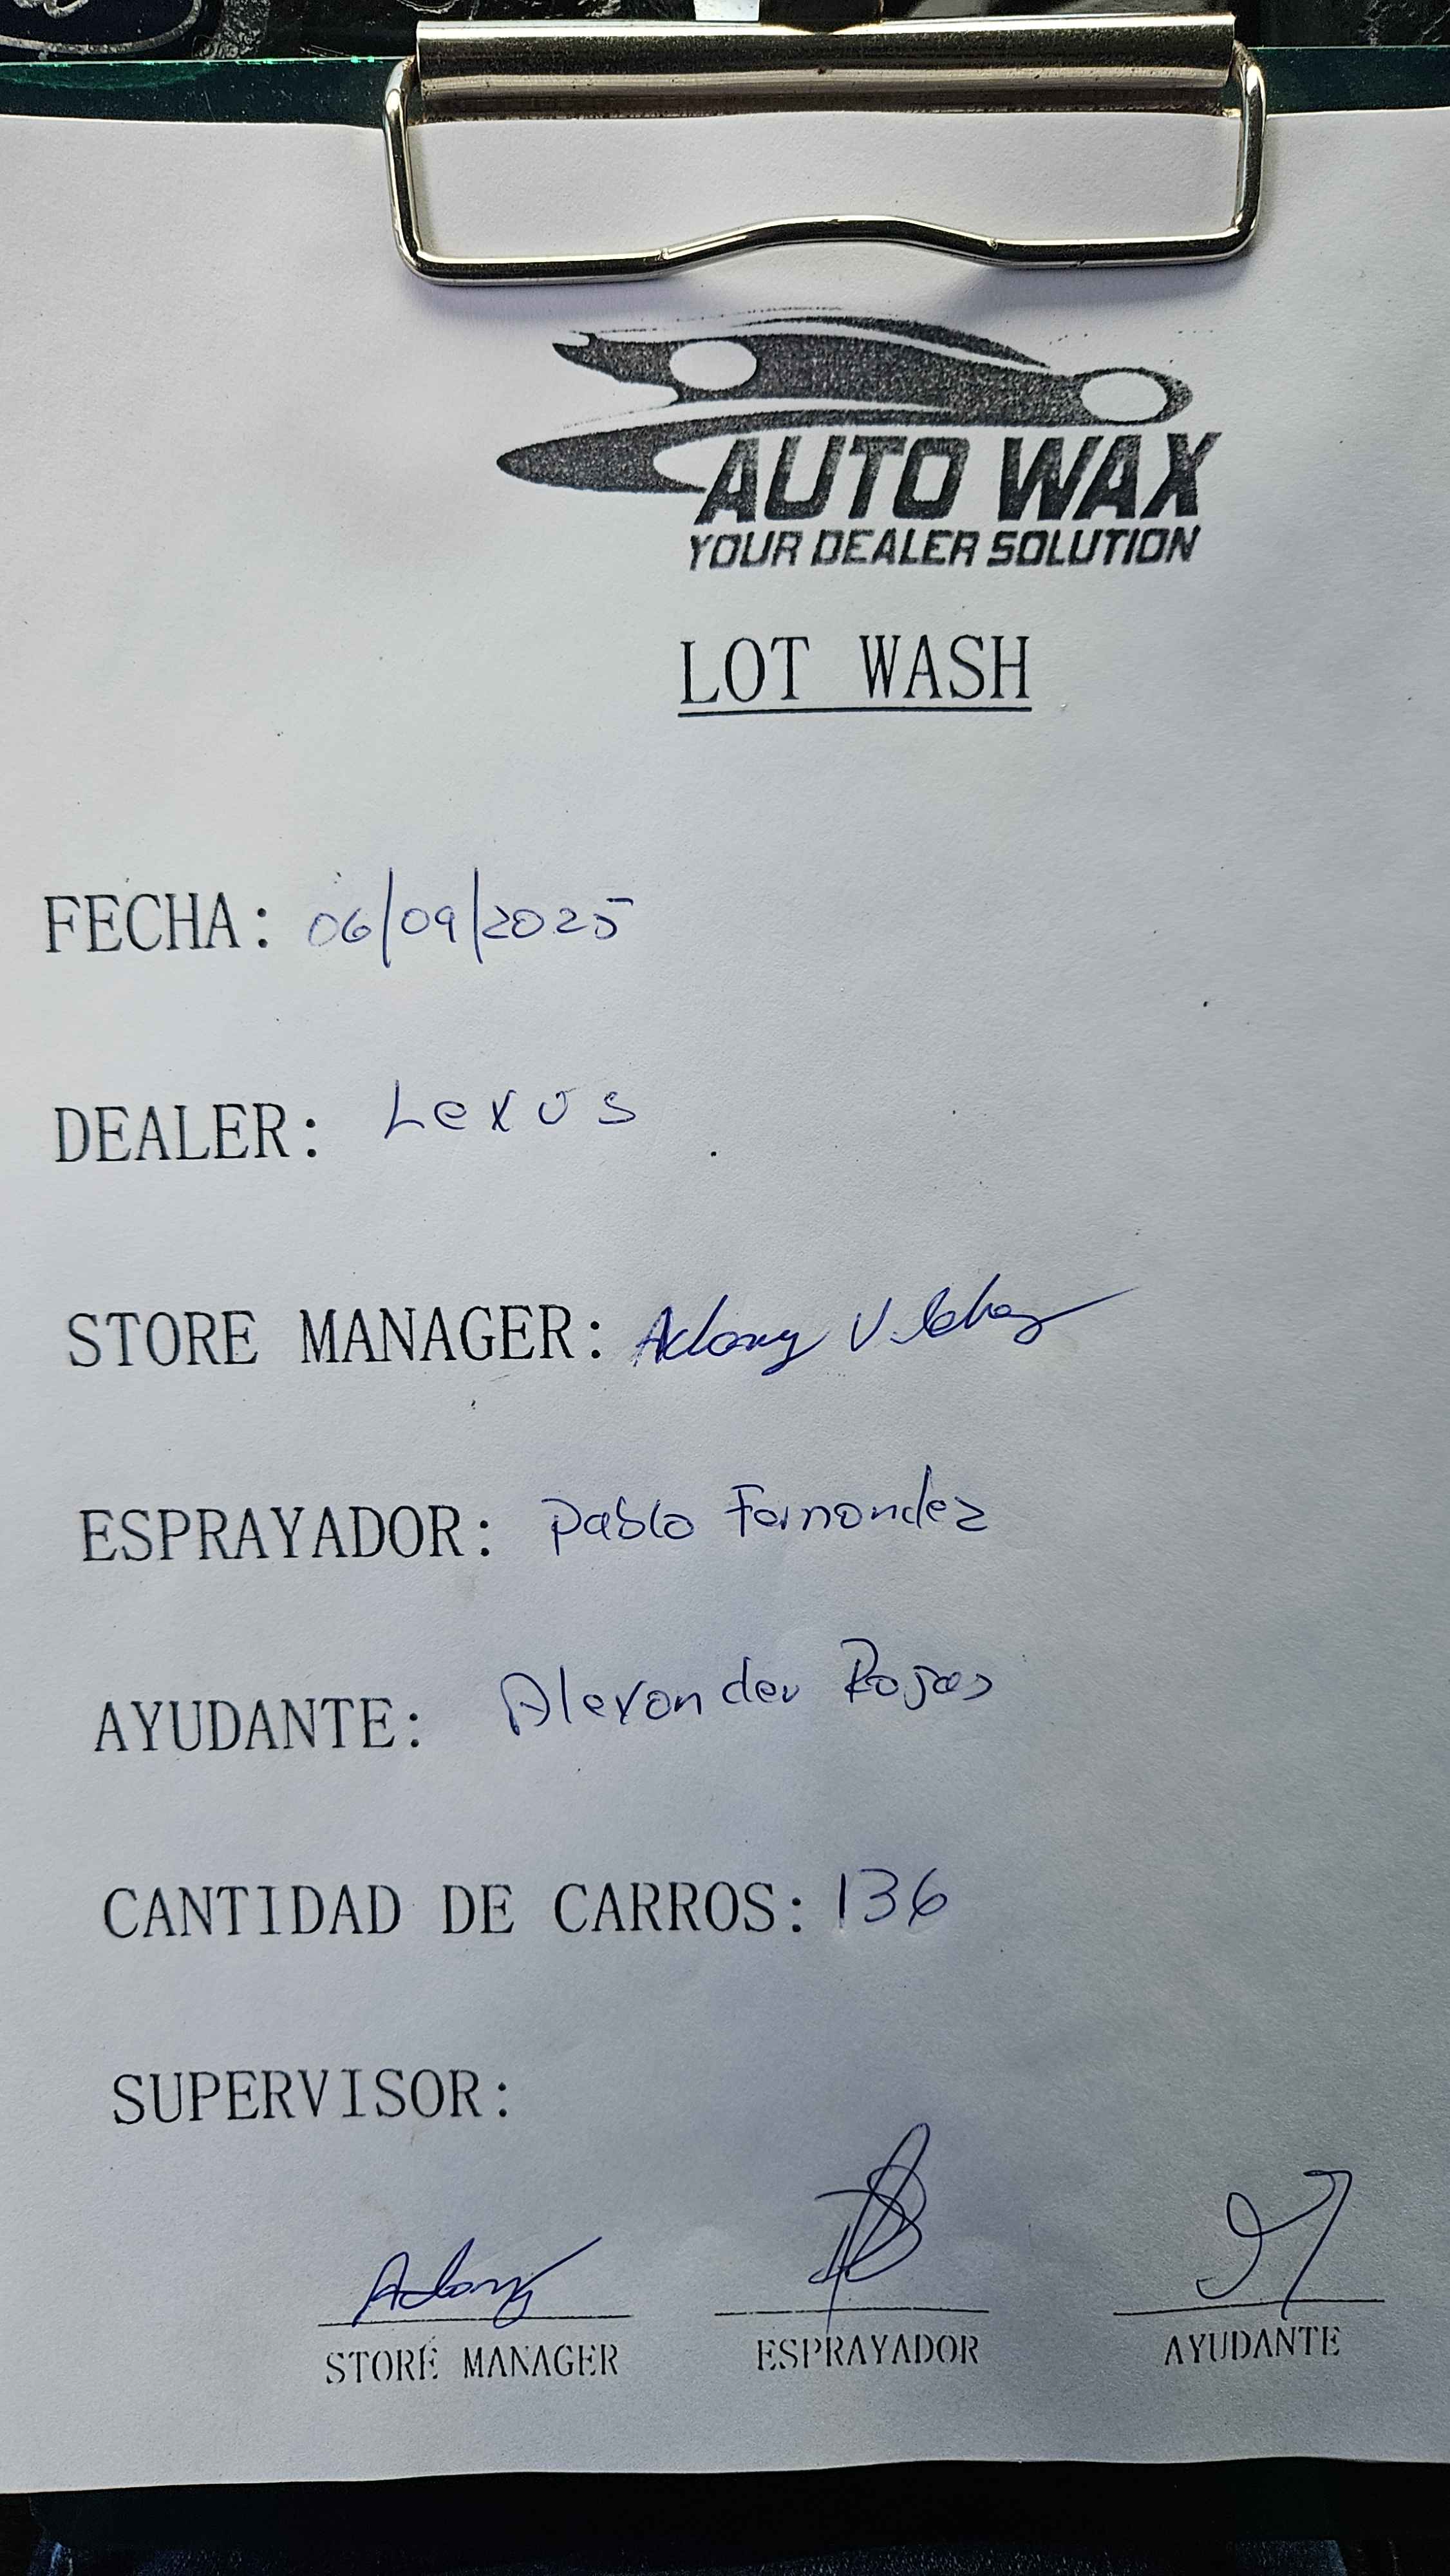 AUTO WAX
YOUR DEALER SOLUTION
LOT WASH
FECHA: 06/09/2025
DEALER: Lexus
STORE MANAGER: Adony
ESPRAYADOR: Pablo Fernandez
AYUDANTE: Alexander Rojas
CANTIDAD DE CARROS: 136
SUPERVISOR:
Adony
STORE MANAGER ESPRAYADOR AYUDANTE